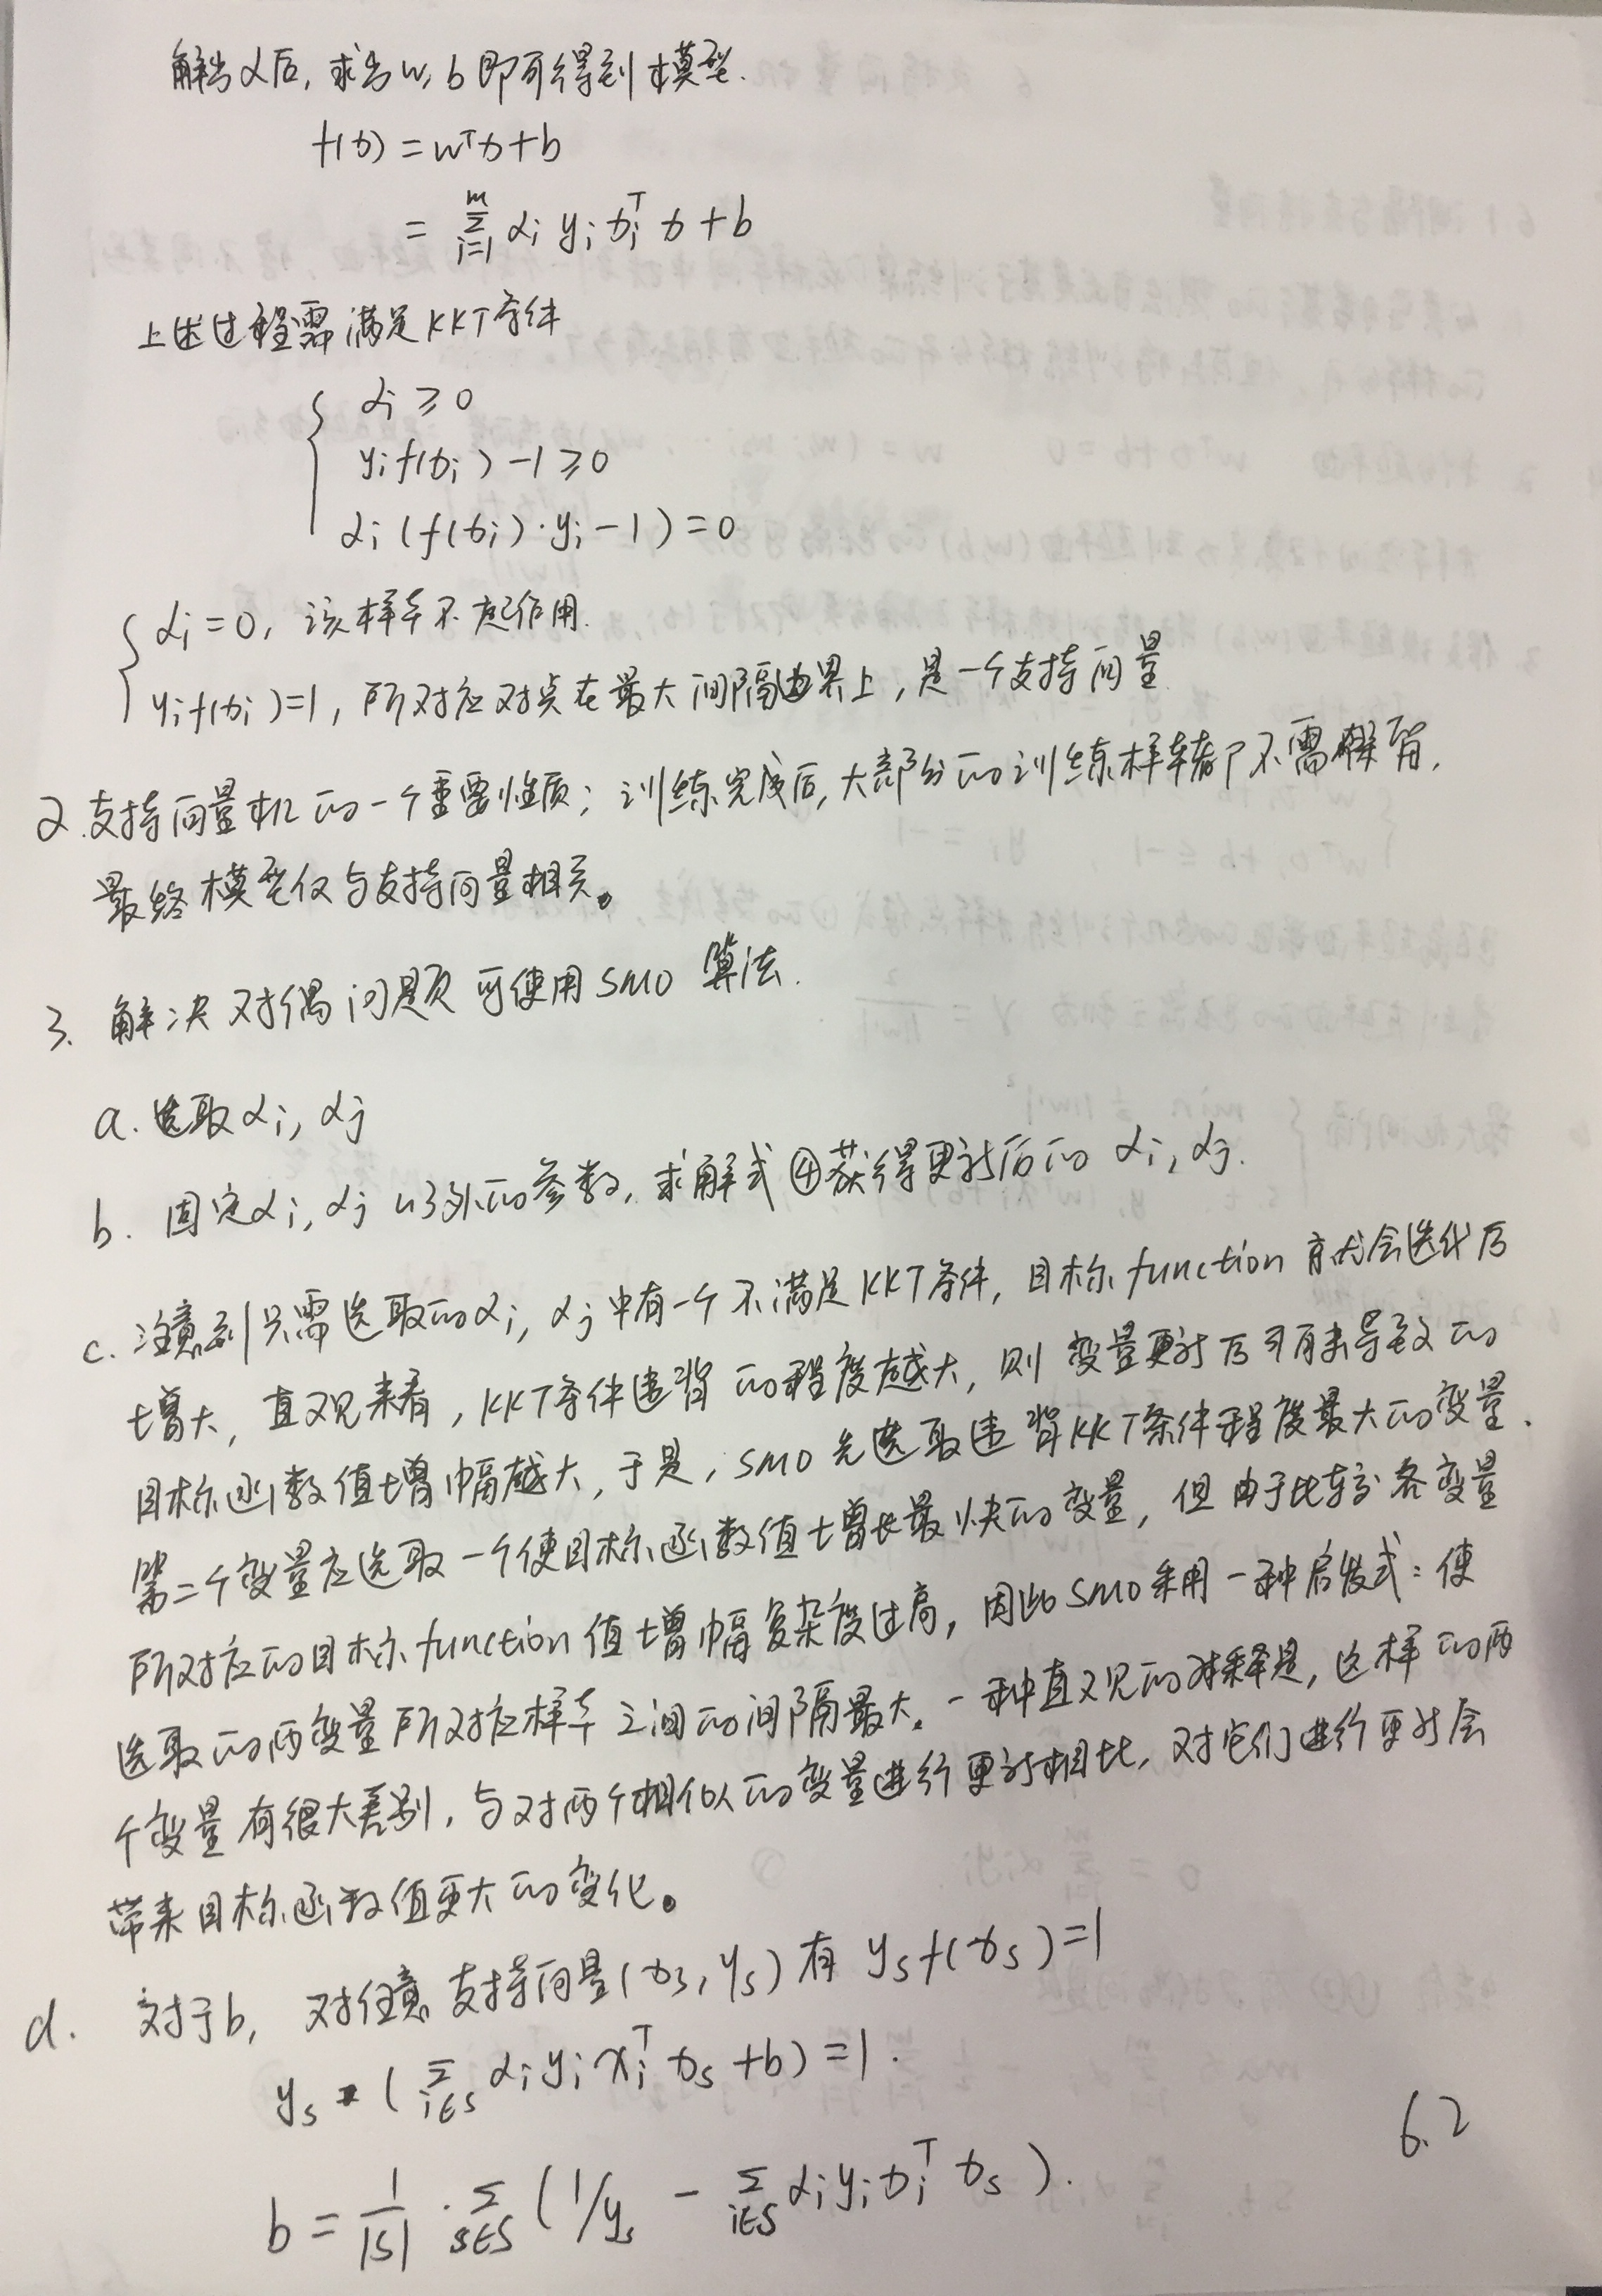 解出α后, 求出w, b即可得到模型.
f(x) = wᵀx+b
= Σᵢ₌₁ᵐ αᵢ yᵢ xᵢᵀ x + b
上述过程需满足KKT条件
{ αᵢ ≥ 0
yᵢf(xᵢ) -1 ≥0
αᵢ (f(xᵢ)·yᵢ -1) = 0
{ αᵢ = 0, 该样本不起作用.
yᵢf(xᵢ)=1, 所对应对点在最大间隔边界上, 是一个支持向量
2. 支持向量机的一个重要性质; 训练完成后, 大部分的训练样本都不需保留,
最终模型仅与支持向量相关。
3. 解决对偶问题可使用SMO 算法.
a. 选取αᵢ, αⱼ
b. 固定αᵢ, αⱼ以外的参数, 求解式④获得更新后的 αᵢ, αⱼ.
c. 注意到只需选取的αᵢ, αⱼ中有一个不满足KKT条件, 目标function 就会迭代后
增大, 直观来看, KKT条件违背的程度越大, 则变量更新后可有来导致的
目标函数值增幅越大, 于是, SMO先选取违背KKT条件程度最大的变量.
第二个变量应选取一个使目标函数值增长最快的变量, 但由于比较各变量
所对应的目标function值增幅复杂度过高, 因此SMO采用一种启发式: 使
选取的两变量所对应样本之间的间隔最大。一种直观的解释是, 这样的两
个变量有很大差别, 与对两个相似的变量进行更新相比, 对它们进行更新会
带来目标函数值更大的变化。
d. 对于b, 对任意支持向量(xₛ, yₛ) 有 yₛf(xₛ)=1
yₛ · (Σ_{i∈S} αᵢyᵢxᵢᵀ xₛ + b) = 1.
b = 1/|S| · Σ_{s∈S} (1/yₛ - Σ_{i∈S} αᵢyᵢxᵢᵀ xₛ).
6.2